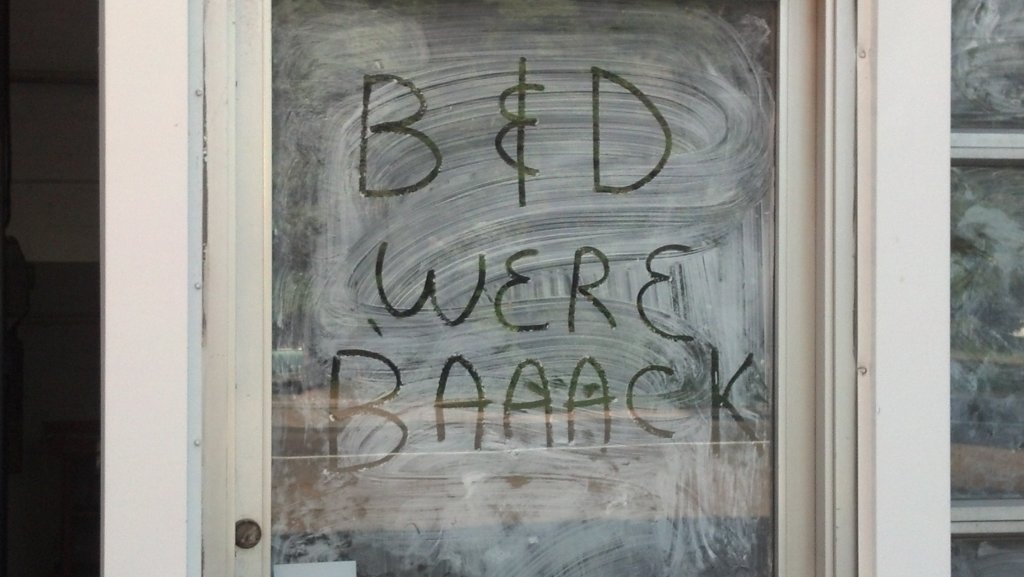 B & D
WERE
BAAACK